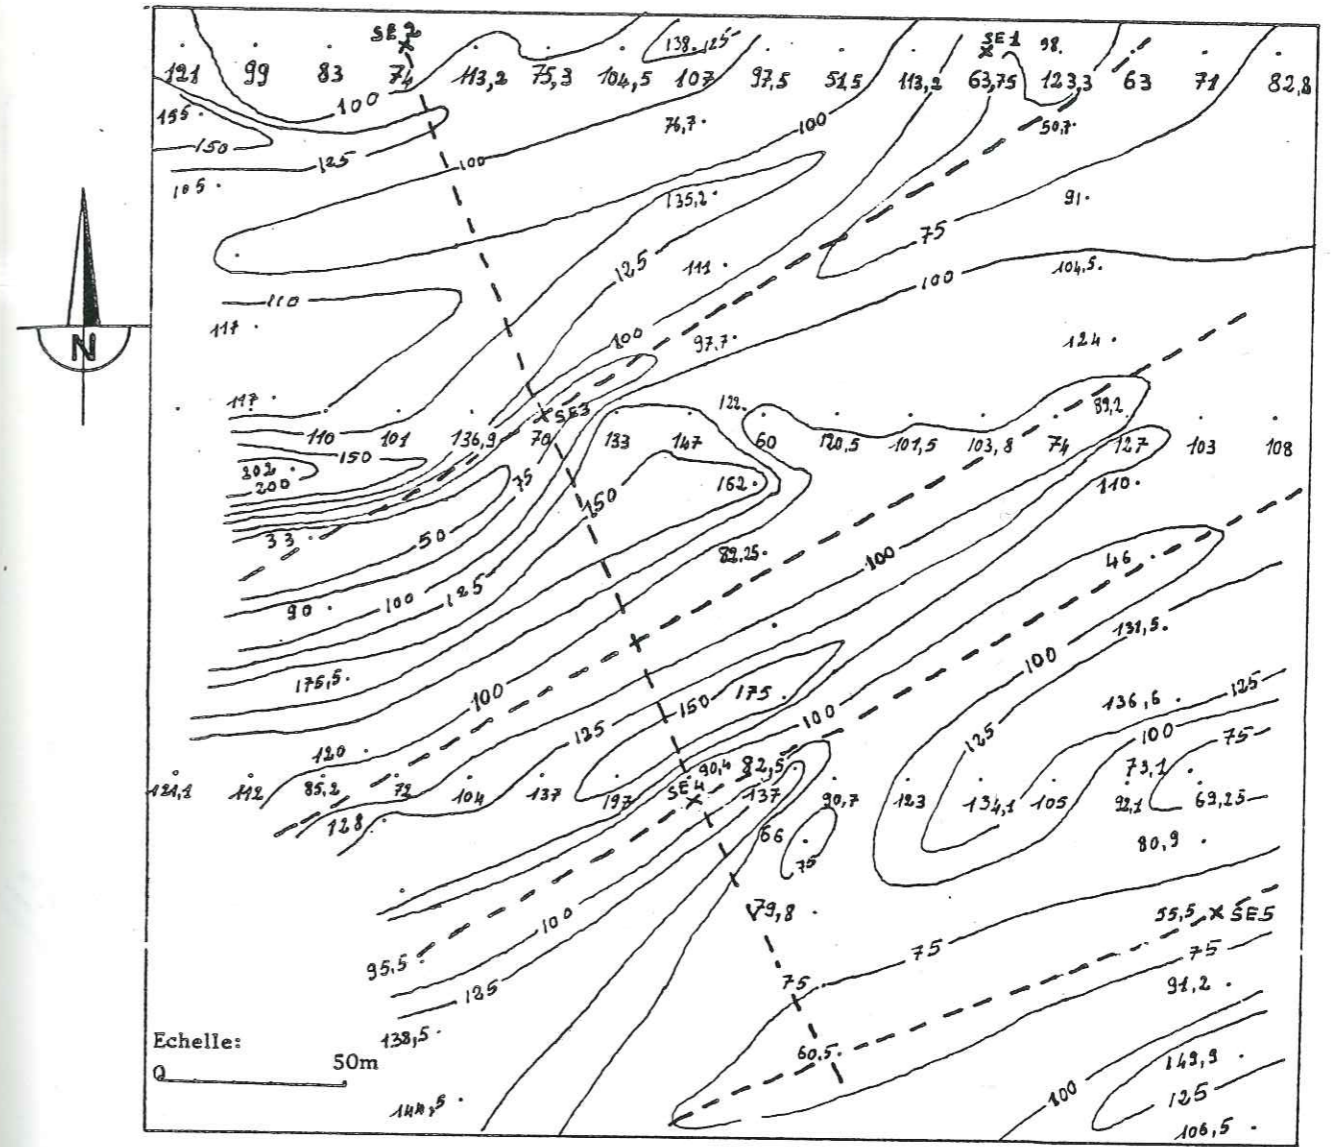 SE2
138. 125
SE1
98.
121 99 83 74 113,2 75,3 104,5 107 97,5 51,5 113,2 63,75 123,3 63 71 82,8
100
155.
76,7.
100
50,7.
150
125
100
105.
135,2.
91.
75
125
111.
104,5.
100
110
117.
100
97,7.
124.
117.
122.
89,2
SE3
110 101 136,9 70 133 147 60 120,5 101,5 103,8 74 127 103 108
202.
150
200
75
150
162.
110.
33.
50
82,25.
100
46
90.
100
125
131,5.
175,5.
100
100
150
175.
136,6.
125
100
125
125
100
75
120
90,4
82,5
73,1
121,1 112 85,2 72 104 137 197 SE4 137 90,7 123 134,1 105 92,1 69,25
128
66
75
80,9.
N
79,8.
55,5
SE5
100
95,5.
75
75
125
75
91,2.
138,5.
Echelle:
0 50m
60,5.
149,9.
100
125
144,5.
106,5.